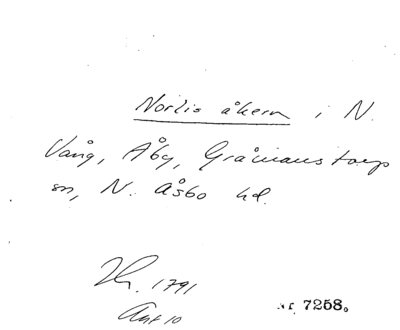 Norlis åkern i N.
Vång, Åby, Gråmanstorps
sn, N. Åsbo hd.
1791
Akt 10
Nr 7258.